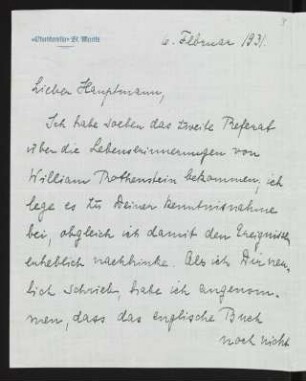 »Chantarella« St. Moritz
6. Februar 1931.
Lieber Hauptmann,
Ich habe soeben das zweite Referat
über die Lebenserinnerungen von
William Rothenstein bekommen; ich
lege es zu Deiner Kenntnisnahme
bei, obgleich ich damit den Ereignissen
erheblich nachhinke. Als ich Dir neu-
lich schrieb, habe ich angenom-
men, dass das englische Buch
noch nicht